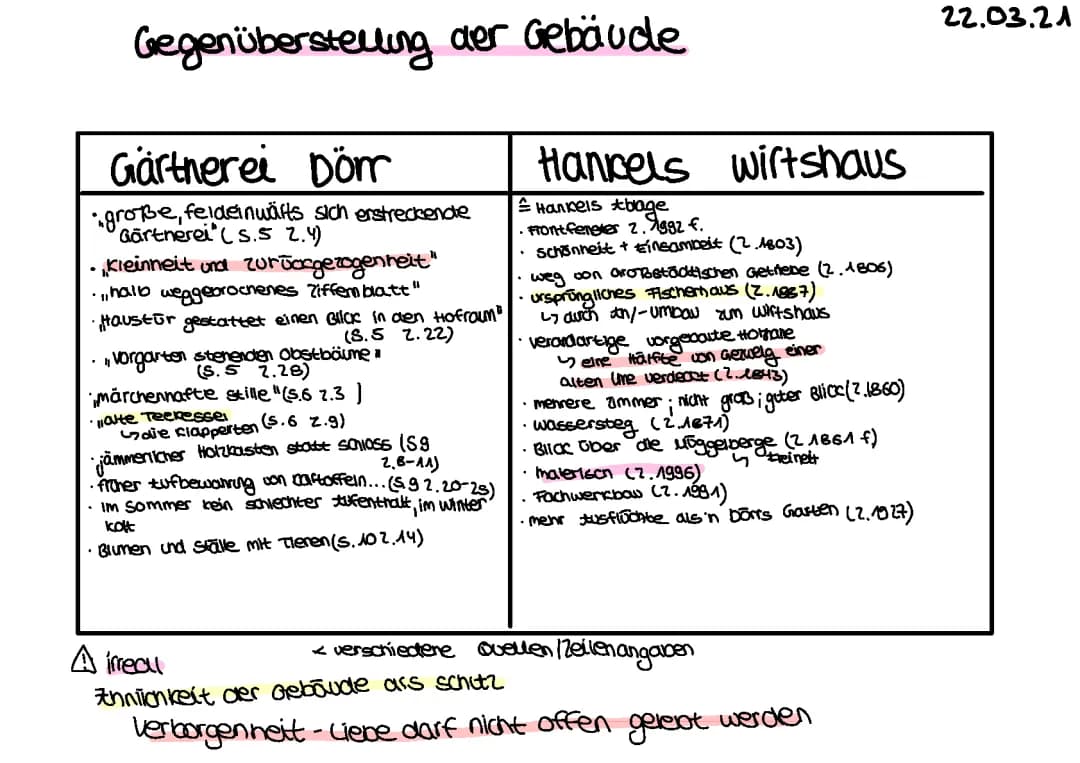 22.03.21
Gegenüberstellung der Gebäude
Gärtnerei Dörr
• „große, feldeinwärts sich erstreckende
Gärtnerei" (S.5 Z.4)
• „Kleinheit und Zurückgezogenheit"
• „halb weggebrochenes Ziffernblatt"
• „Haustür gestattet einen Blick in den Hofraum"
(S.5 Z.22)
• „Vorgarten stehenden Obstbäume"
(S.5 Z.28)
„märchenhafte Stille" (S.6 Z.3)
• „alte Teekessel
↳ die klapperten (S.6 Z.9)
• jämmerlicher Holzkasten statt Schloss (S9
Z.8-11)
• früher Aufbewahrung von Kartoffeln... (S.9 Z.20-25)
• Im Sommer kein schlechter Aufenthalt, im Winter
kalt
• Blumen und Ställe mit Tieren (S.10 Z.14)
Hankels Wirtshaus
≙ Hankels Ablage
• Frontfenster Z. 1992 f.
• Schönheit + Einsamkeit (Z.1803)
• weg von Großstädtischen Getriebe (Z.1806)
• ursprüngliches Fischerhaus (Z.1887)
↳ durch An/-Umbau zum Wirtshaus
• verandartige vorgebaute Holzhalle
↳ eine Hälfte von Gezweig einer
alten Ulme verdeckt (Z.1843)
• mehrere Zimmer; nicht groß; guter Blick (Z.1860)
• Wassersteg (Z.1871)
• Blick über die Müggelberge (Z 1861 f)
↳ Freiheit
• malerisch (Z.1996)
• Fachwerkbau (Z.1991)
• mehr Ausflüchte als'n Dörrs Garten (Z.1927)
⚠ irreal
< verschiedene Quellen/Zeilenangaben
Ähnlichkeit der Gebäude als Schutz
Verborgenheit - Liebe darf nicht offen gelebt werden